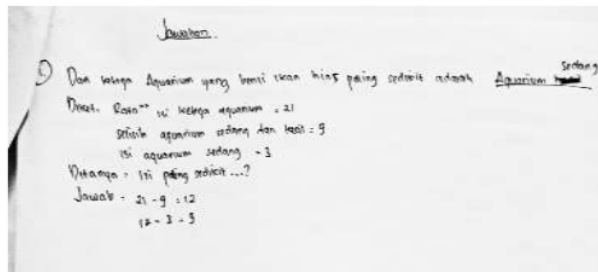 Jawaban
Dari ketiga Aquarium yang berisi ikan hias paling sedikit adalah Aquarium sedang
Diket. Rata" isi ketiga aquarium = 21
selisih aquarium sedang dan kecil = 9
isi aquarium sedang - 3
Ditanya = isi paling sedikit ...?
Jawab = 21 - 9 = 12
12 - 3 = 3